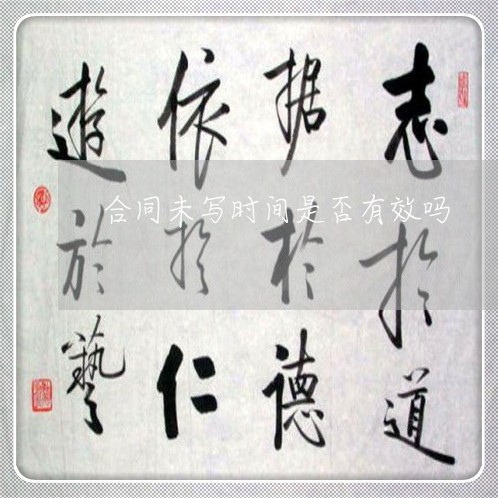 志於道
据於德
依於仁
遊於藝
合同未写时间是否有效吗